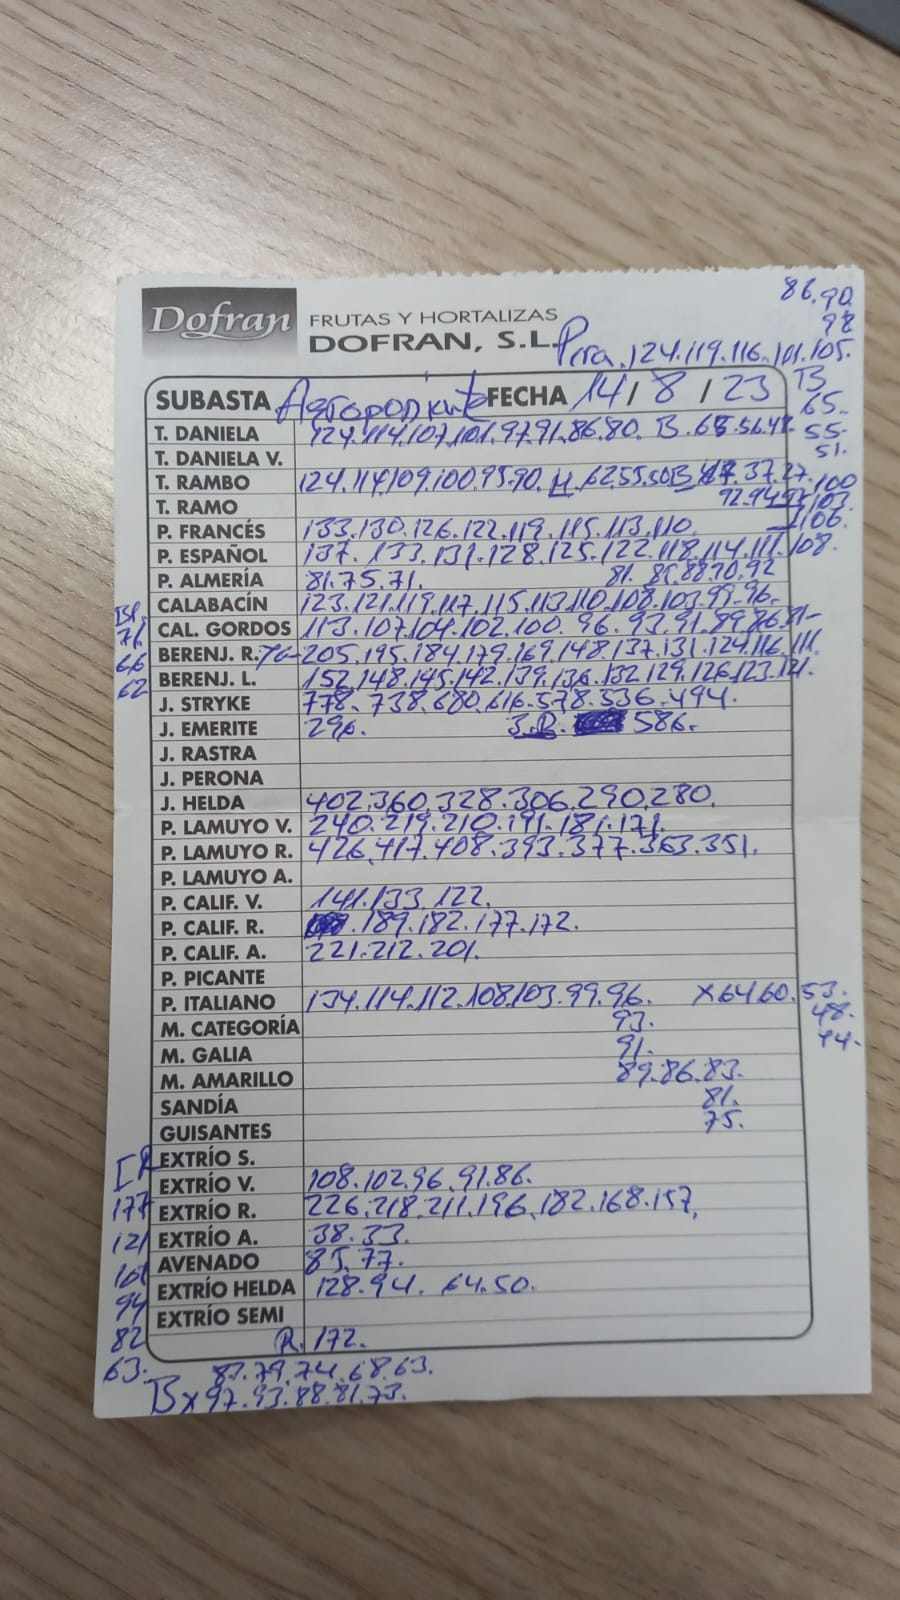 86.90.
92
Dofran FRUTAS Y HORTALIZAS
DOFRAN, S.L. Pera.124.119.116.101.105.
SUBASTA Agroponiente FECHA 14/8/23 B
65.
T. DANIELA 124.114.107.101.97.91.86.80. B.
55.
T. DANIELA V. 51.
T. RAMBO 124.114.109.100.95.90. M.62.55.50 B 37.27. 100
T. RAMO 103
P. FRANCÉS 133.130.126.122.119.115.113.110. 106.
P. ESPAÑOL 137.133.131.128.125.122.118.114.111.108.
P. ALMERÍA 81.75.71. 81. 92
CALABACÍN 123.121.119.117.115.113.110.108.103.99.96.
CAL. GORDOS 113.107.104.102.100.96.93.91.89.86.81-
71
BERENJ. R. 205.195.184.179.169.148.137.131.124.116.111.
66
BERENJ. L. 152.148.145.142.139.136.132.129.126.123.121.
62
J. STRYKE 778.738.680.616.578.536.494.
J. EMERITE 296. 586.
J. RASTRA
J. PERONA
J. HELDA 402.360.328.306.290.280.
P. LAMUYO V. 240.219.210.191.181.171.
P. LAMUYO R. 426.417.408.393.377.363.351.
P. LAMUYO A.
P. CALIF. V. 141.133.122.
P. CALIF. R. .189.182.177.172.
P. CALIF. A. 221.212.201.
P. PICANTE
P. ITALIANO 134.114.112.108.103.99.96. X 64 60.53.
48.
M. CATEGORÍA 93.
44-
M. GALIA 91.
M. AMARILLO 89.86.83.
SANDÍA 81.
GUISANTES 75.
EXTRÍO S.
EXTRÍO V. 108.102.96.91.86.
177 EXTRÍO R. 226.218.211.196.182.168.157.
121 EXTRÍO A. 38.33.
AVENADO 85.77.
101
EXTRÍO HELDA 128.94. 64.50.
94 EXTRÍO SEMI
82 R.172.
63. 87.79.74.68.63.
Bx97.93.88.81.73.